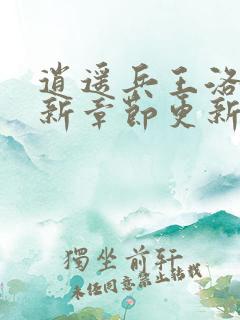 逍遥兵王洛
新章節更新
獨坐前軒
未经同意禁止转载